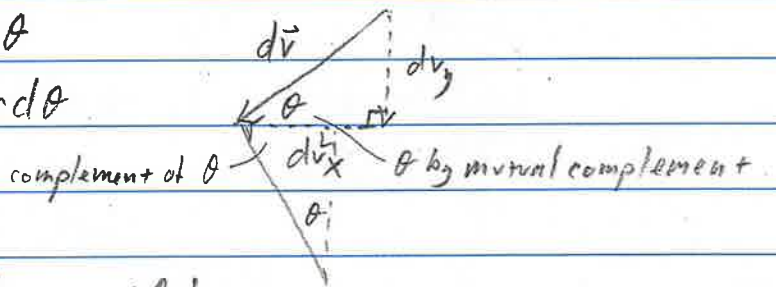 θ
dv⃗
dv_y
dθ
θ
complement of θ
dv_x
θ by mutual complement
θ